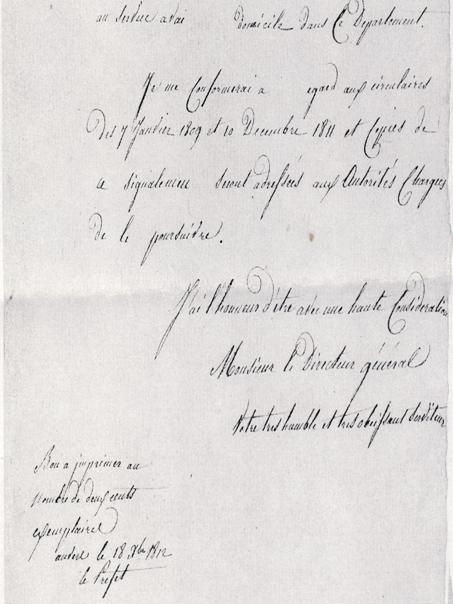 au service avai domicile dans le Département.
Je me Conformerai a egard aux circulaires
des 7 Janvier 1809 et 10 Decembre 1811 et Copies de
ce signalemen seront adressées aux Autorités Chargées
de le poursuivre.
J'ai l'honneur d'être avec une haute Considération
Monsieur le Directeur général
Votre très humble et très obéissant Serviteur
Bon a imprimer au
nombre de deux cents
exemplaires
le 18 Xbre 1812
le Préfet